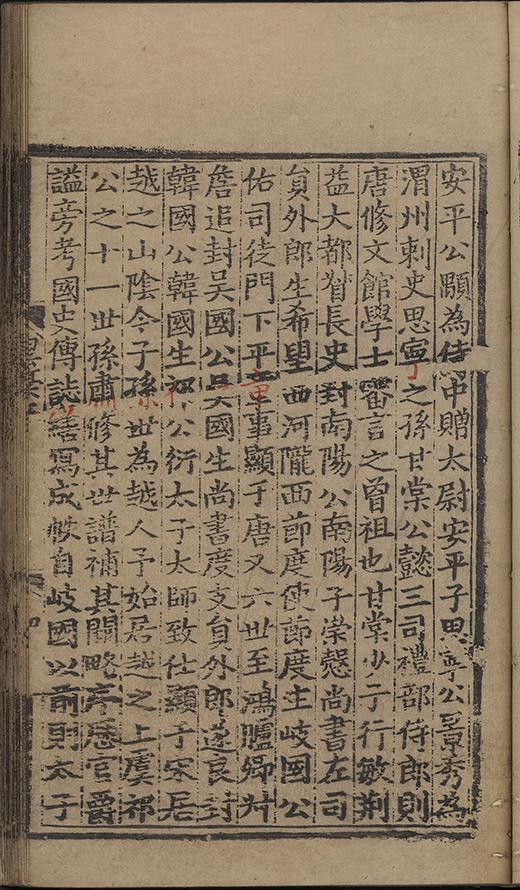 安平公顯為侍中贈太尉安平子思寧公景秀為
渭州刺史思寧之孫甘棠公懿三司禮部侍郎則
唐修文館學士審言之曾祖也甘棠少子行敏荆
益大都督長史封南陽公南陽子崇慤尚書左司
貟外郎生希望西河隴西節度使節度生岐國公
佑司徒門下平章事顯于唐又六世至鴻臚卿
詹追封吴國公吴國生尚書度支貟外郎遂良封
韓國公韓國生祁公衍太子太師致仕顯于宋居
越之山陰令子孫世為越人予始居越之上虞祁
公之十一世孫肅修其世譜補其闕略序歷官爵
謚旁考國史傳誌繕寫成帙自岐國以前則太子